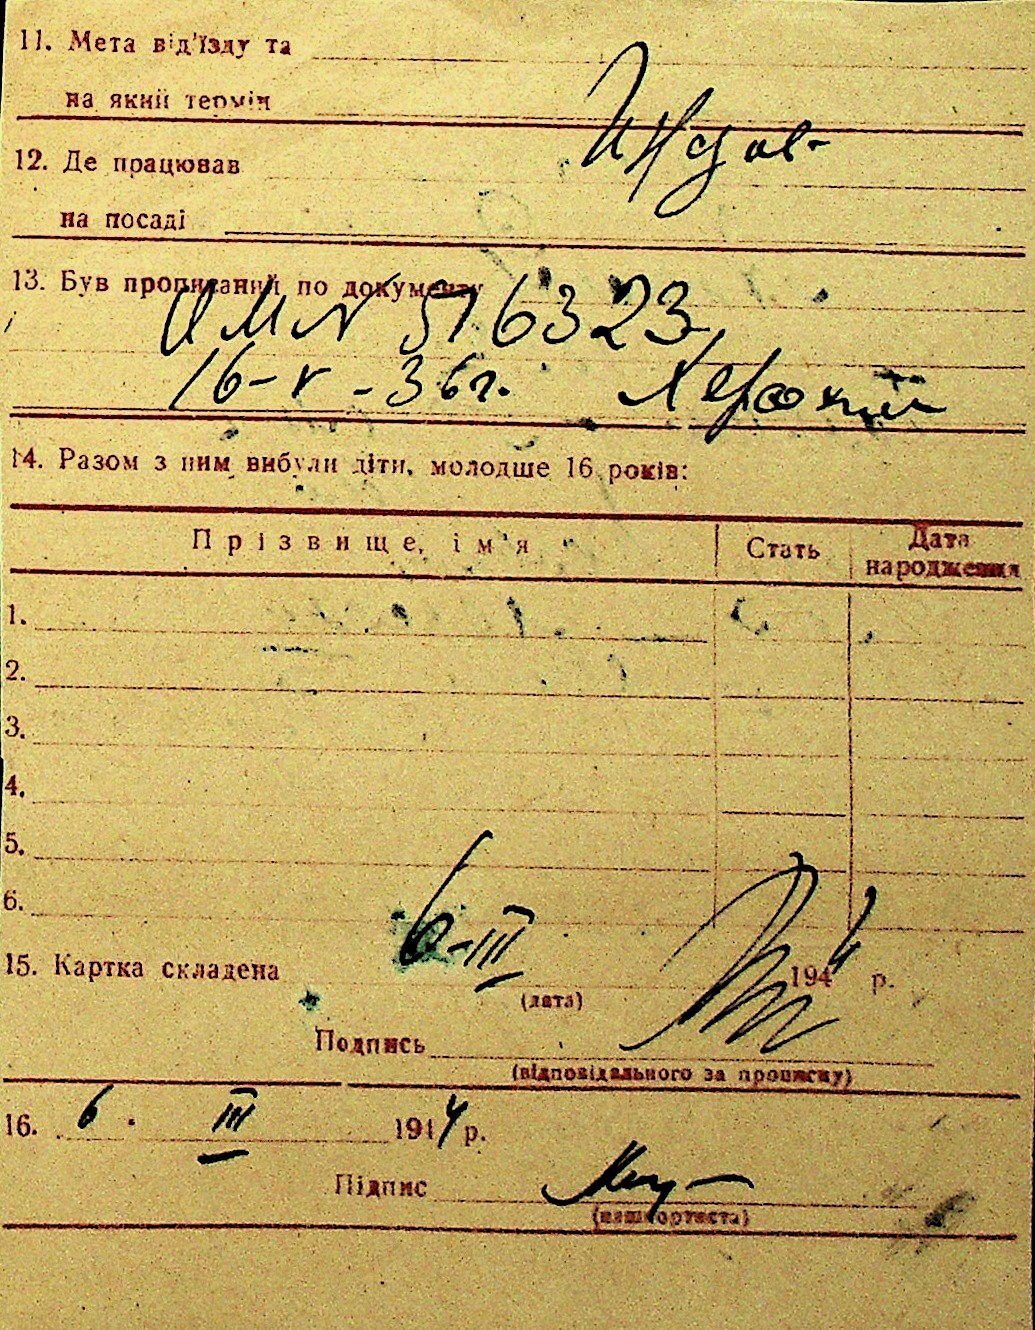 11. Мета від'їзду та
на який термін
12. Де працював
на посаді
13. Був прописаний по документу
№ 516323
16-V-36г.
14. Разом з ним вибули діти, молодше 16 років:
Прізвище, ім'я Стать Дата народження
1.
2.
3.
4.
5.
6.
15. Картка складена 6-III 1944 р.
(дата)
Подпись
(відповідального за прописку)
16. 6. III 1944 р.
Підпис
(пашпортиста)